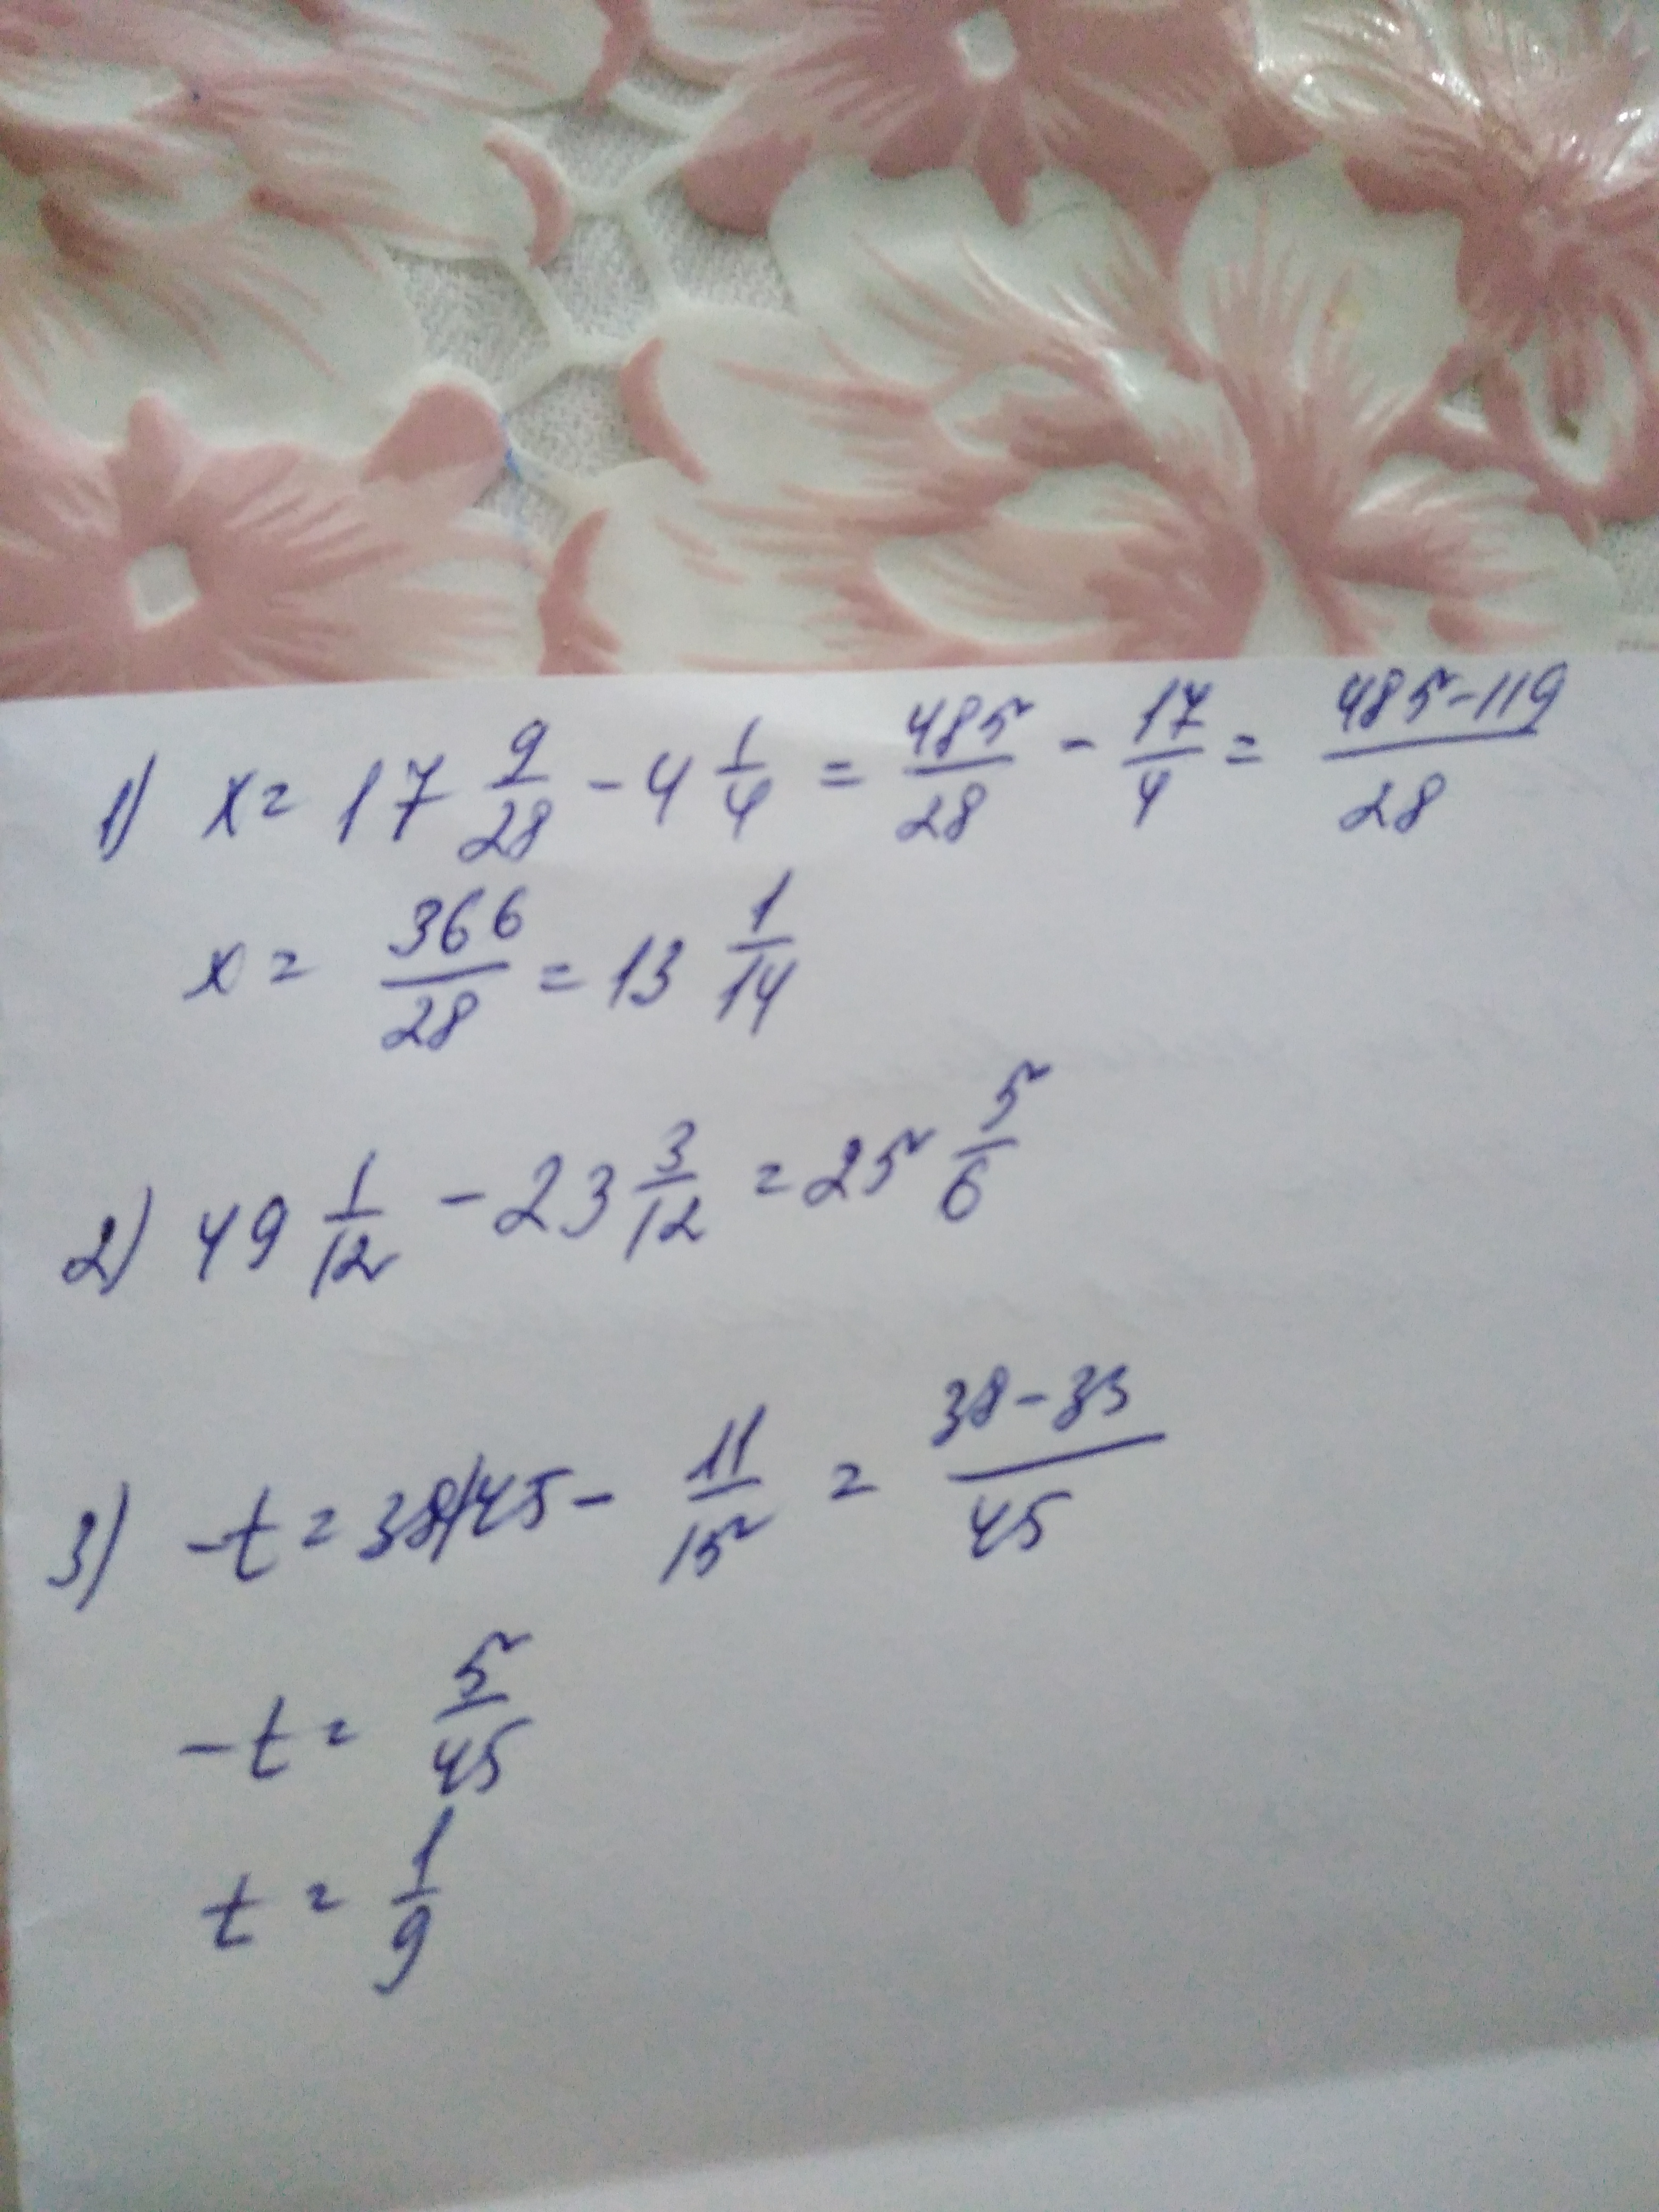 1) x = 17 9/28 - 4 1/4 = 485/28 - 17/4 = 485-119/28
x = 366/28 = 13 1/14
2) 49 1/12 - 23 3/12 = 25 5/6
3) -t = 38/45 - 11/15 = 38-33/45
-t = 5/45
t = 1/9